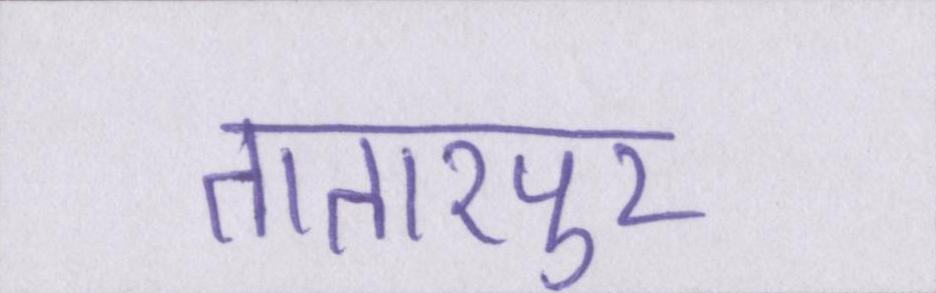 तातारपुर